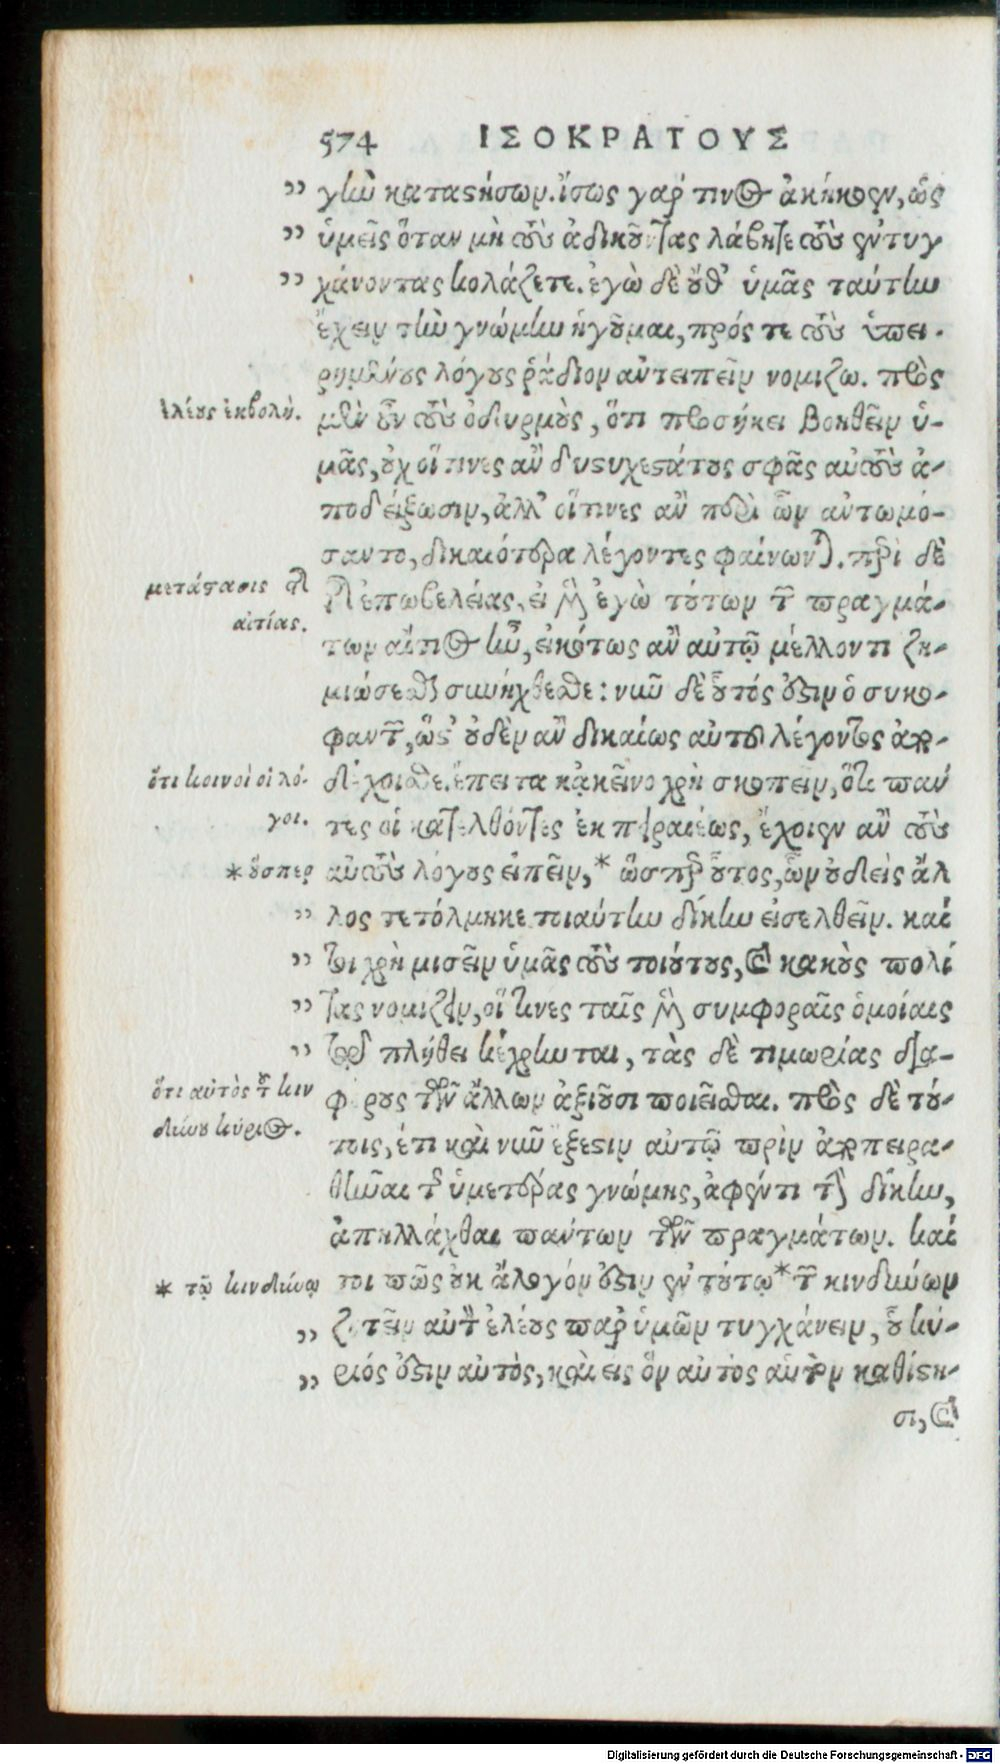 574 ΙΣΟΚΡΑΤΟΥΣ
” γὴν καταστήσων. ἴσως γάρ τινος ἀκήκοεν, ὡς
” ὑμεῖς ὅταν μὴ τοὺς ἀδικοῦντας λάβητε τοὺς ἐντυγ
” χάνοντας κολάζετε. ἐγὼ δὲ οὔθ’ ὑμᾶς ταύτην
ἔχειν τὴν γνώμην ἡγοῦμαι, πρός τε τοὺς ὑπει-
ρημένους λόγους ῥᾴδιον ἀντειπεῖν νομίζω. πρὸς
ἐλέους ἐκβολή.
μὲν οὖν τοὺς ὀδυρμοὺς, ὅτι προσήκει βοηθεῖν ὑ-
μᾶς, οὐχ οἵτινες ἂν δυστυχεστάτους σφᾶς αὐτοὺς ἀ-
ποδείξωσιν, ἀλλ’ οἵτινες ἂν περὶ ὧν ἀντωμό-
σαντο, δικαιότερα λέγοντες φαίνωνται. περὶ δὲ
μετάστασις τῆς
τῆς ἐπωβελείας, εἰ μὲν ἐγὼ τούτων τῶν πραγμά-
αἰτίας.
των αἴτιος ἦν, εἰκότως ἂν αὐτῷ μέλλοντι ζη-
μιώσεσθαι συνήχθεσθε: νῦν δὲ οὗτός ἐστιν ὁ συκο-
φαντῶν, ὥστ’ οὐδὲν ἂν δικαίως αὐτοῦ λέγοντος ἀπο-
ὅτι κοινοὶ οἱ λό-
δέχοισθε. ἔπειτα κἀκεῖνο χρὴ σκοπεῖν, ὅτι παν
γοι.
τες οἱ κατελθόντες ἐκ πειραιέως, ἔχοιεν ἂν τοὺς
* ὅσπερ
αὐτοὺς λόγους εἰπεῖν,* ὥσπερ οὗτος, ὧν οὐδεὶς ἄλ
” λος τετόλμηκε τοιαύτην δίκην εἰσελθεῖν. καί
” τοι χρὴ μισεῖν ὑμᾶς τοὺς τοιούτους, καὶ κακοὺς πολί
” τας νομίζειν, οἵτινες ταῖς μὲν συμφοραῖς ὁμοίαις
” τῷ πλήθει κέχρηνται, τὰς δὲ τιμωρίας δια-
ὅτι αὐτὸς τοῦ κιν
φόρους τῶν ἄλλων ἀξιοῦσι ποιεῖσθαι. πρὸς δὲ τού-
δύνου κύριος.
τοις, ἔτι καὶ νῦν ἔξεστιν αὐτῷ πρὶν ἀποπειρα-
θῆναι τῆς ὑμετέρας γνώμης, ἀφέντι τὴν δίκην,
ἀπηλλάχθαι πάντων τῶν πραγμάτων. καί
* τῷ κινδύνῳ
τοι πῶς οὐκ ἄλογόν ἐστιν ἐν τούτῳ* τῶν κινδύνων
” ζητεῖν αὐτὸν ἐλέους παρ’ ὑμῶν τυγχάνειν, οὗ κύ-
” ριός ἐστιν αὐτὸς, καὶ εἰς ὃν αὐτὸς αὑτὸν καθίστη-
σι, καὶ
Digitalisierung gefördert durch die Deutsche Forschungsgemeinschaft - DFG